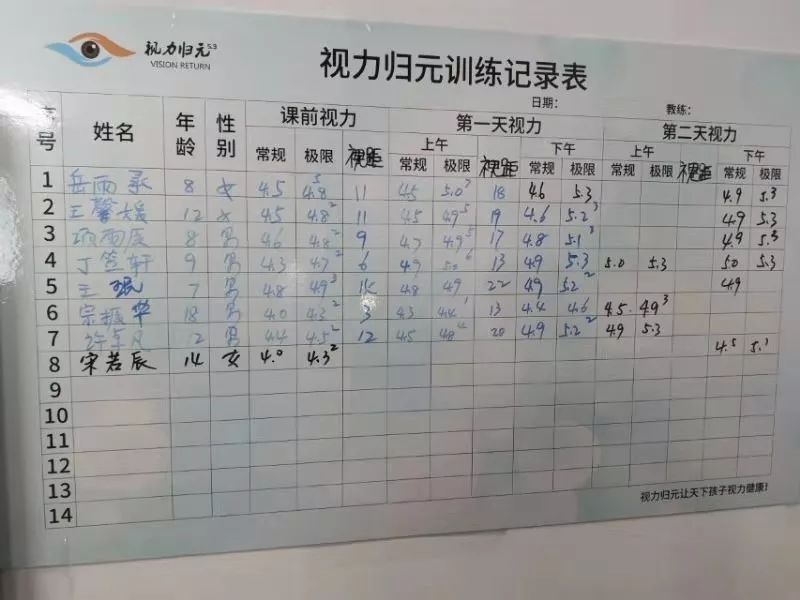 视力归元5.3
VISION RETURN
视力归元训练记录表
日期: 教练:
号 姓名 年龄 性别 课前视力 第一天视力 第二天视力
上午 下午 上午 下午
常规 极限 视距 常规 极限 视距 常规 极限 常规 极限 视距 常规 极限
1 岳雨 8 女 4.5 4.8 5 11 4.5 5.0 3 18 4.6 5.3 4.9 5.3
2 王馨媛 12 女 4.5 4.8 2 11 4.5 4.9 5 19 4.6 5.2 3 4.9 5.3
3 项雨 8 男 4.6 4.8 2 9 4.7 4.9 5 17 4.8 5.1 3 4.9 5.3
4 丁 轩 9 男 4.3 4.7 2 6 4.9 13 4.9 5.3 5.0 5.3 5.0 5.3
5 王 7 男 4.8 4.9 3 4.8 4.9 22 4.9 5.2 2 4.9
6 宗振华 18 男 4.0 4.3 2 3 4.3 4.4 1 13 4.4 4.6 4.5 4.9 3
7 许 凡 12 男 4.4 4.5 2 12 4.5 4.8 4 20 4.9 5.2 2 4.9 5.3
8 宋若辰 14 女 4.0 4.3 2 4.5 5.1
9
10
11
12
13
14
视力归元让天下孩子视力健康!